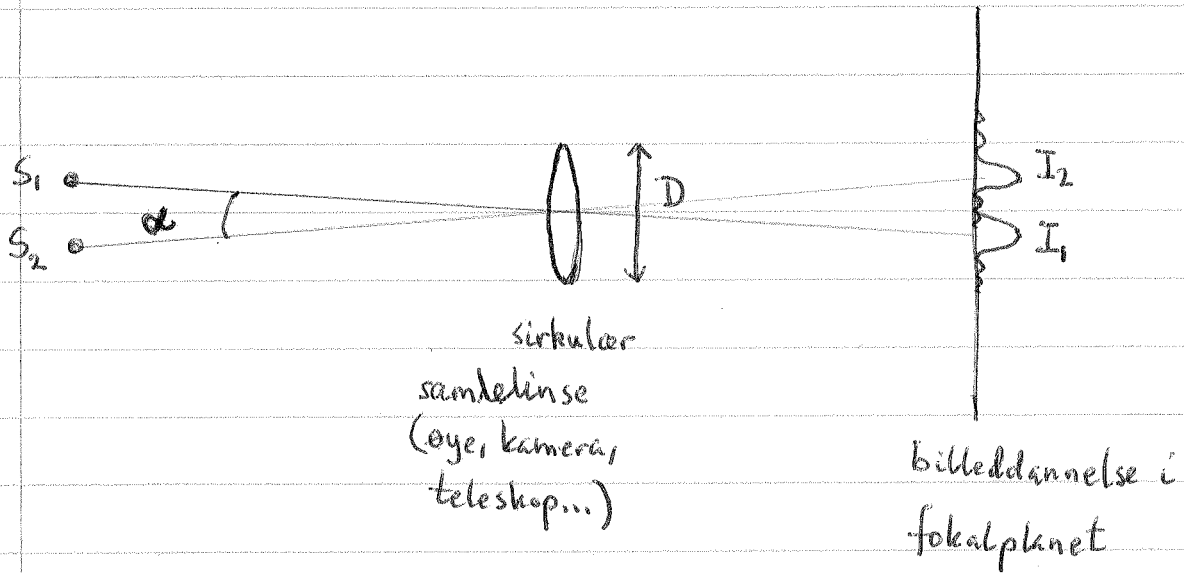 S₁
S₂
α
D
I₂
I₁
sirkulær
samlelinse
(øye, kamera,
teleskop...)
billeddannelse i
fokalplanet